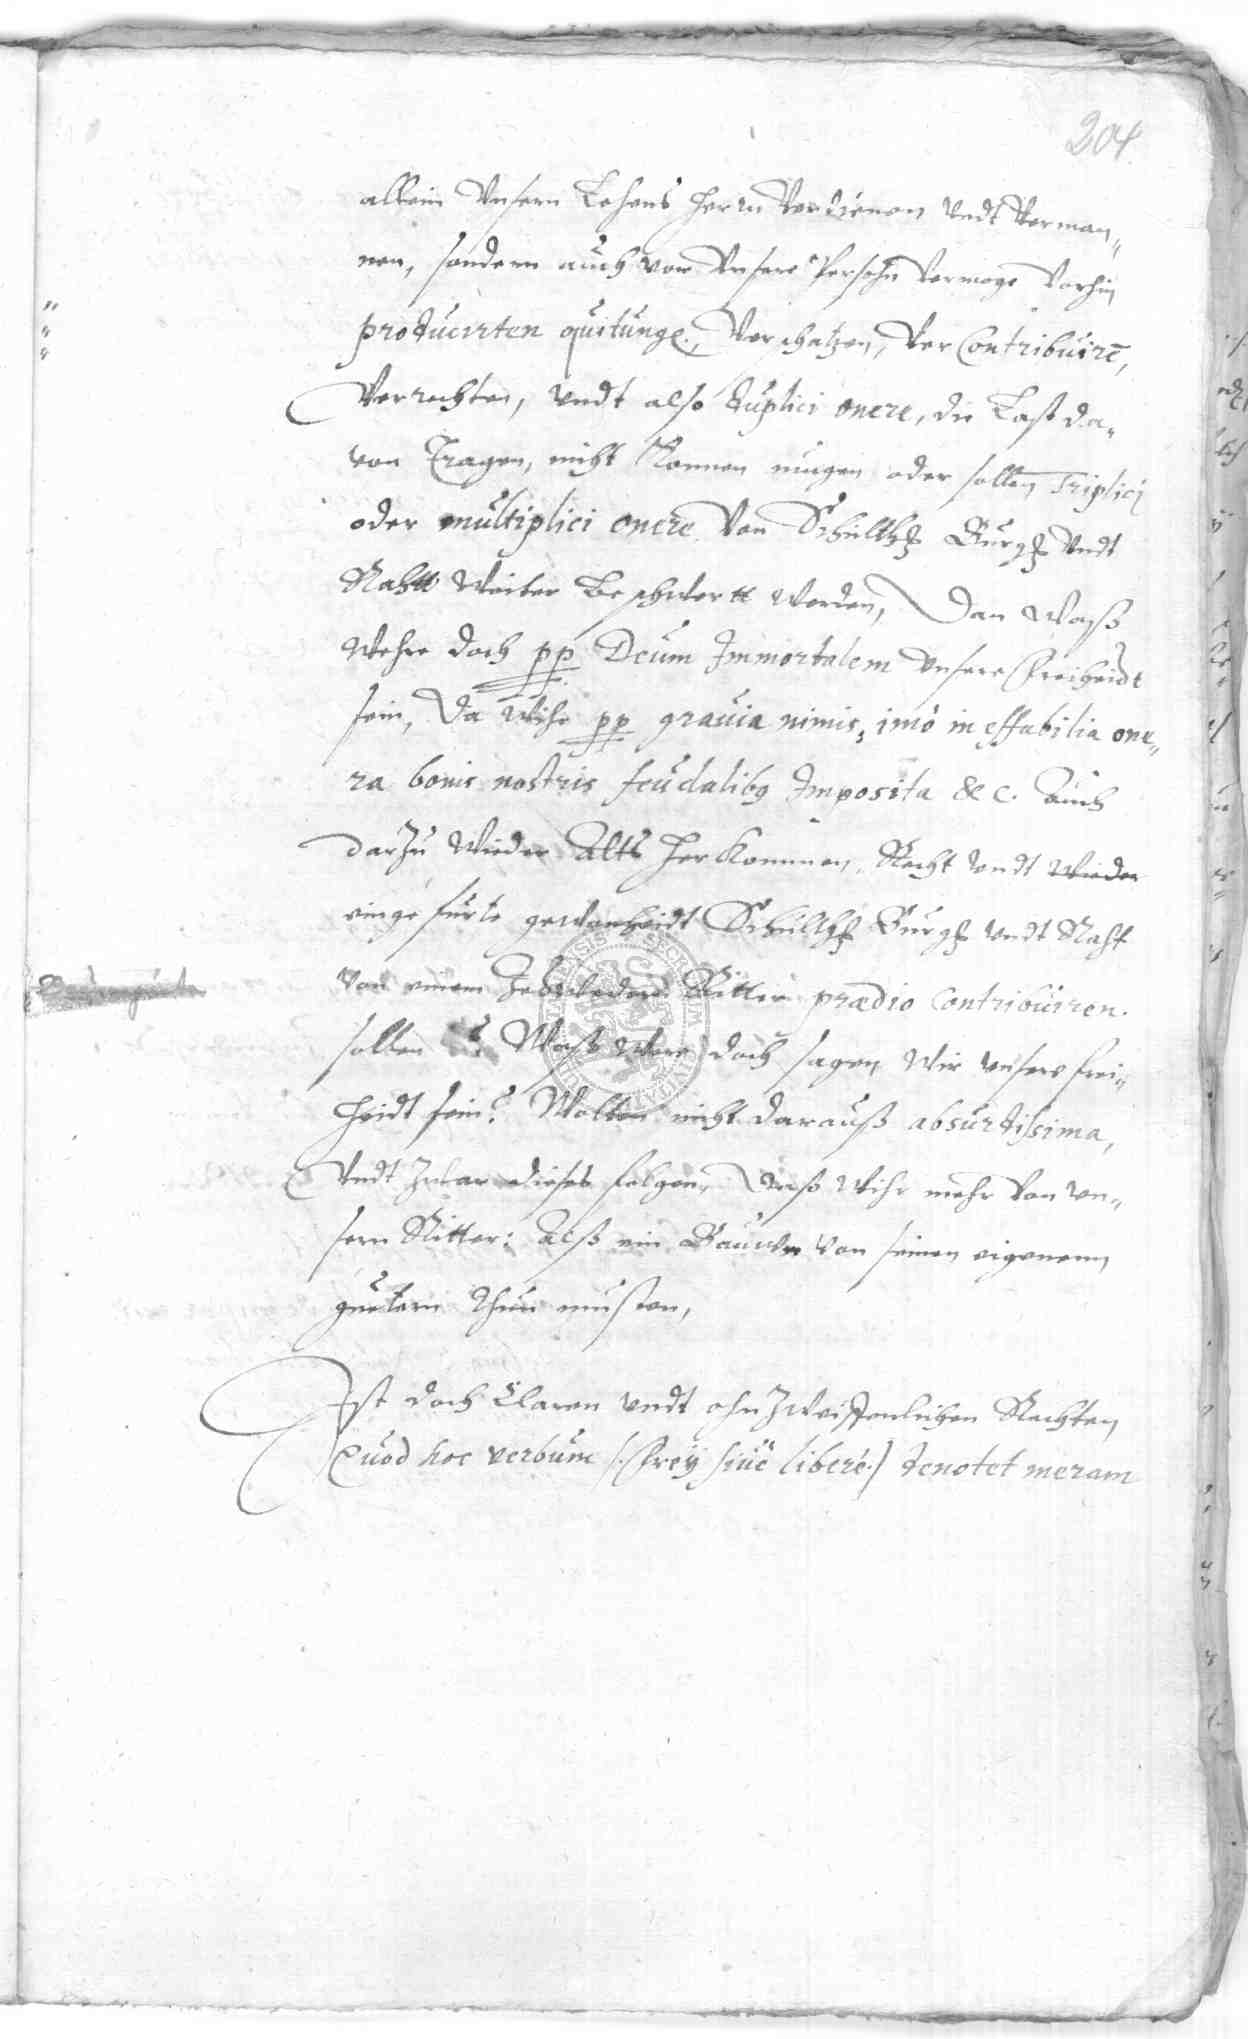 204.
allein Unsern Lehens Herrn Verdienen undt Verman„
nen, sondern auch von Unsere Persohn vermoge vorhin
producirten quitunge, Verschatzen, Ver Contribuirē,
Verrechten, undt also duplici onere, die Last da„
von Tragen, nicht Konnen mugen oder sollen Triplici
oder multiplici onere Von Schulth: Burg: undt
Rahtt weiter beschwertt werden, Dan waß
wehre doch pp Deum Immortalem unsere Freiheidt
sein, Da wihr pp gravia nimis, imò in effabilia one„
ra bonis nostris feudalibg Imposita &c. auch
darzu wieder Alts Herkommen, Recht undt wieder
eingefurte gewonheidt Schulth: Burg: undt Raht
von einem Jedwedern Ritter prædio Contribuiren.
sollen? Waß were doch sagen wir unsere frei„
heidt sein? Wolten nicht darauß absurdissima,
undt Zwar dieses folgen, Daß wihr mehr von un„
sern Ritter: Alß ein Bauwr von seinen eigenenn
guetern thun musten,
Ist doch Claren undt ohnzweiffenlichen Rechten
Quod hoc verbum /: Frey sivè liberè :/ denotet meram